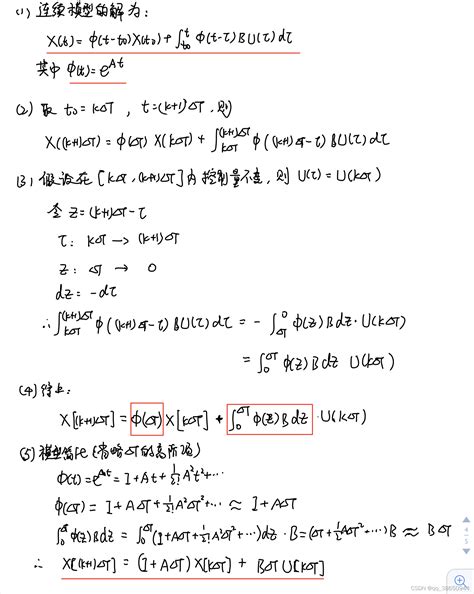 (1) 连续模型的解为：
X(t) = φ(t-t₀)X(t₀) + ∫_{t₀}^{t} φ(t-τ)BU(τ)dτ
其中 φ(t)=e^{At}
(2) 取 t₀=KΔT , t=(K+1)ΔT, 则
X((K+1)ΔT) = φ(ΔT) X(KΔT) + ∫_{KΔT}^{(K+1)ΔT} φ((K+1)ΔT-τ)BU(τ)dτ
(3) 假设在[KΔT,(K+1)ΔT]内控制量不变, 则 U(τ)=U(KΔT)
令 z=(K+1)ΔT-τ
τ: KΔT → (K+1)ΔT
z: ΔT → 0
dz = -dτ
∴ ∫_{KΔT}^{(K+1)ΔT} φ((K+1)ΔT-τ)BU(τ)dτ = -∫_{ΔT}^{0} φ(z)Bdz·U(KΔT)
= ∫_{0}^{ΔT} φ(z)Bdz U(KΔT)
(4) 综上：
X[(K+1)ΔT] = φ(ΔT) X[KΔT] + ∫_{0}^{ΔT} φ(z)Bdz ·U(KΔT)
(5) 模型简化(省略ΔT的高阶项)
φ(t)=e^{At} = I+At+1/2! A²t²+⋯
φ(ΔT) = I+AΔT+1/2! A²ΔT²+⋯ ≈ I+AΔT
∫_{0}^{ΔT} φ(z)Bdz = ∫_{0}^{ΔT} (I+AΔT+1/2! A²ΔT²+⋯)dz·B = (ΔT+1/2! AΔT²+⋯)B ≈ BΔT
∴ X[(K+1)ΔT] = (I+AΔT) X[KΔT] + BΔT U[KΔT]